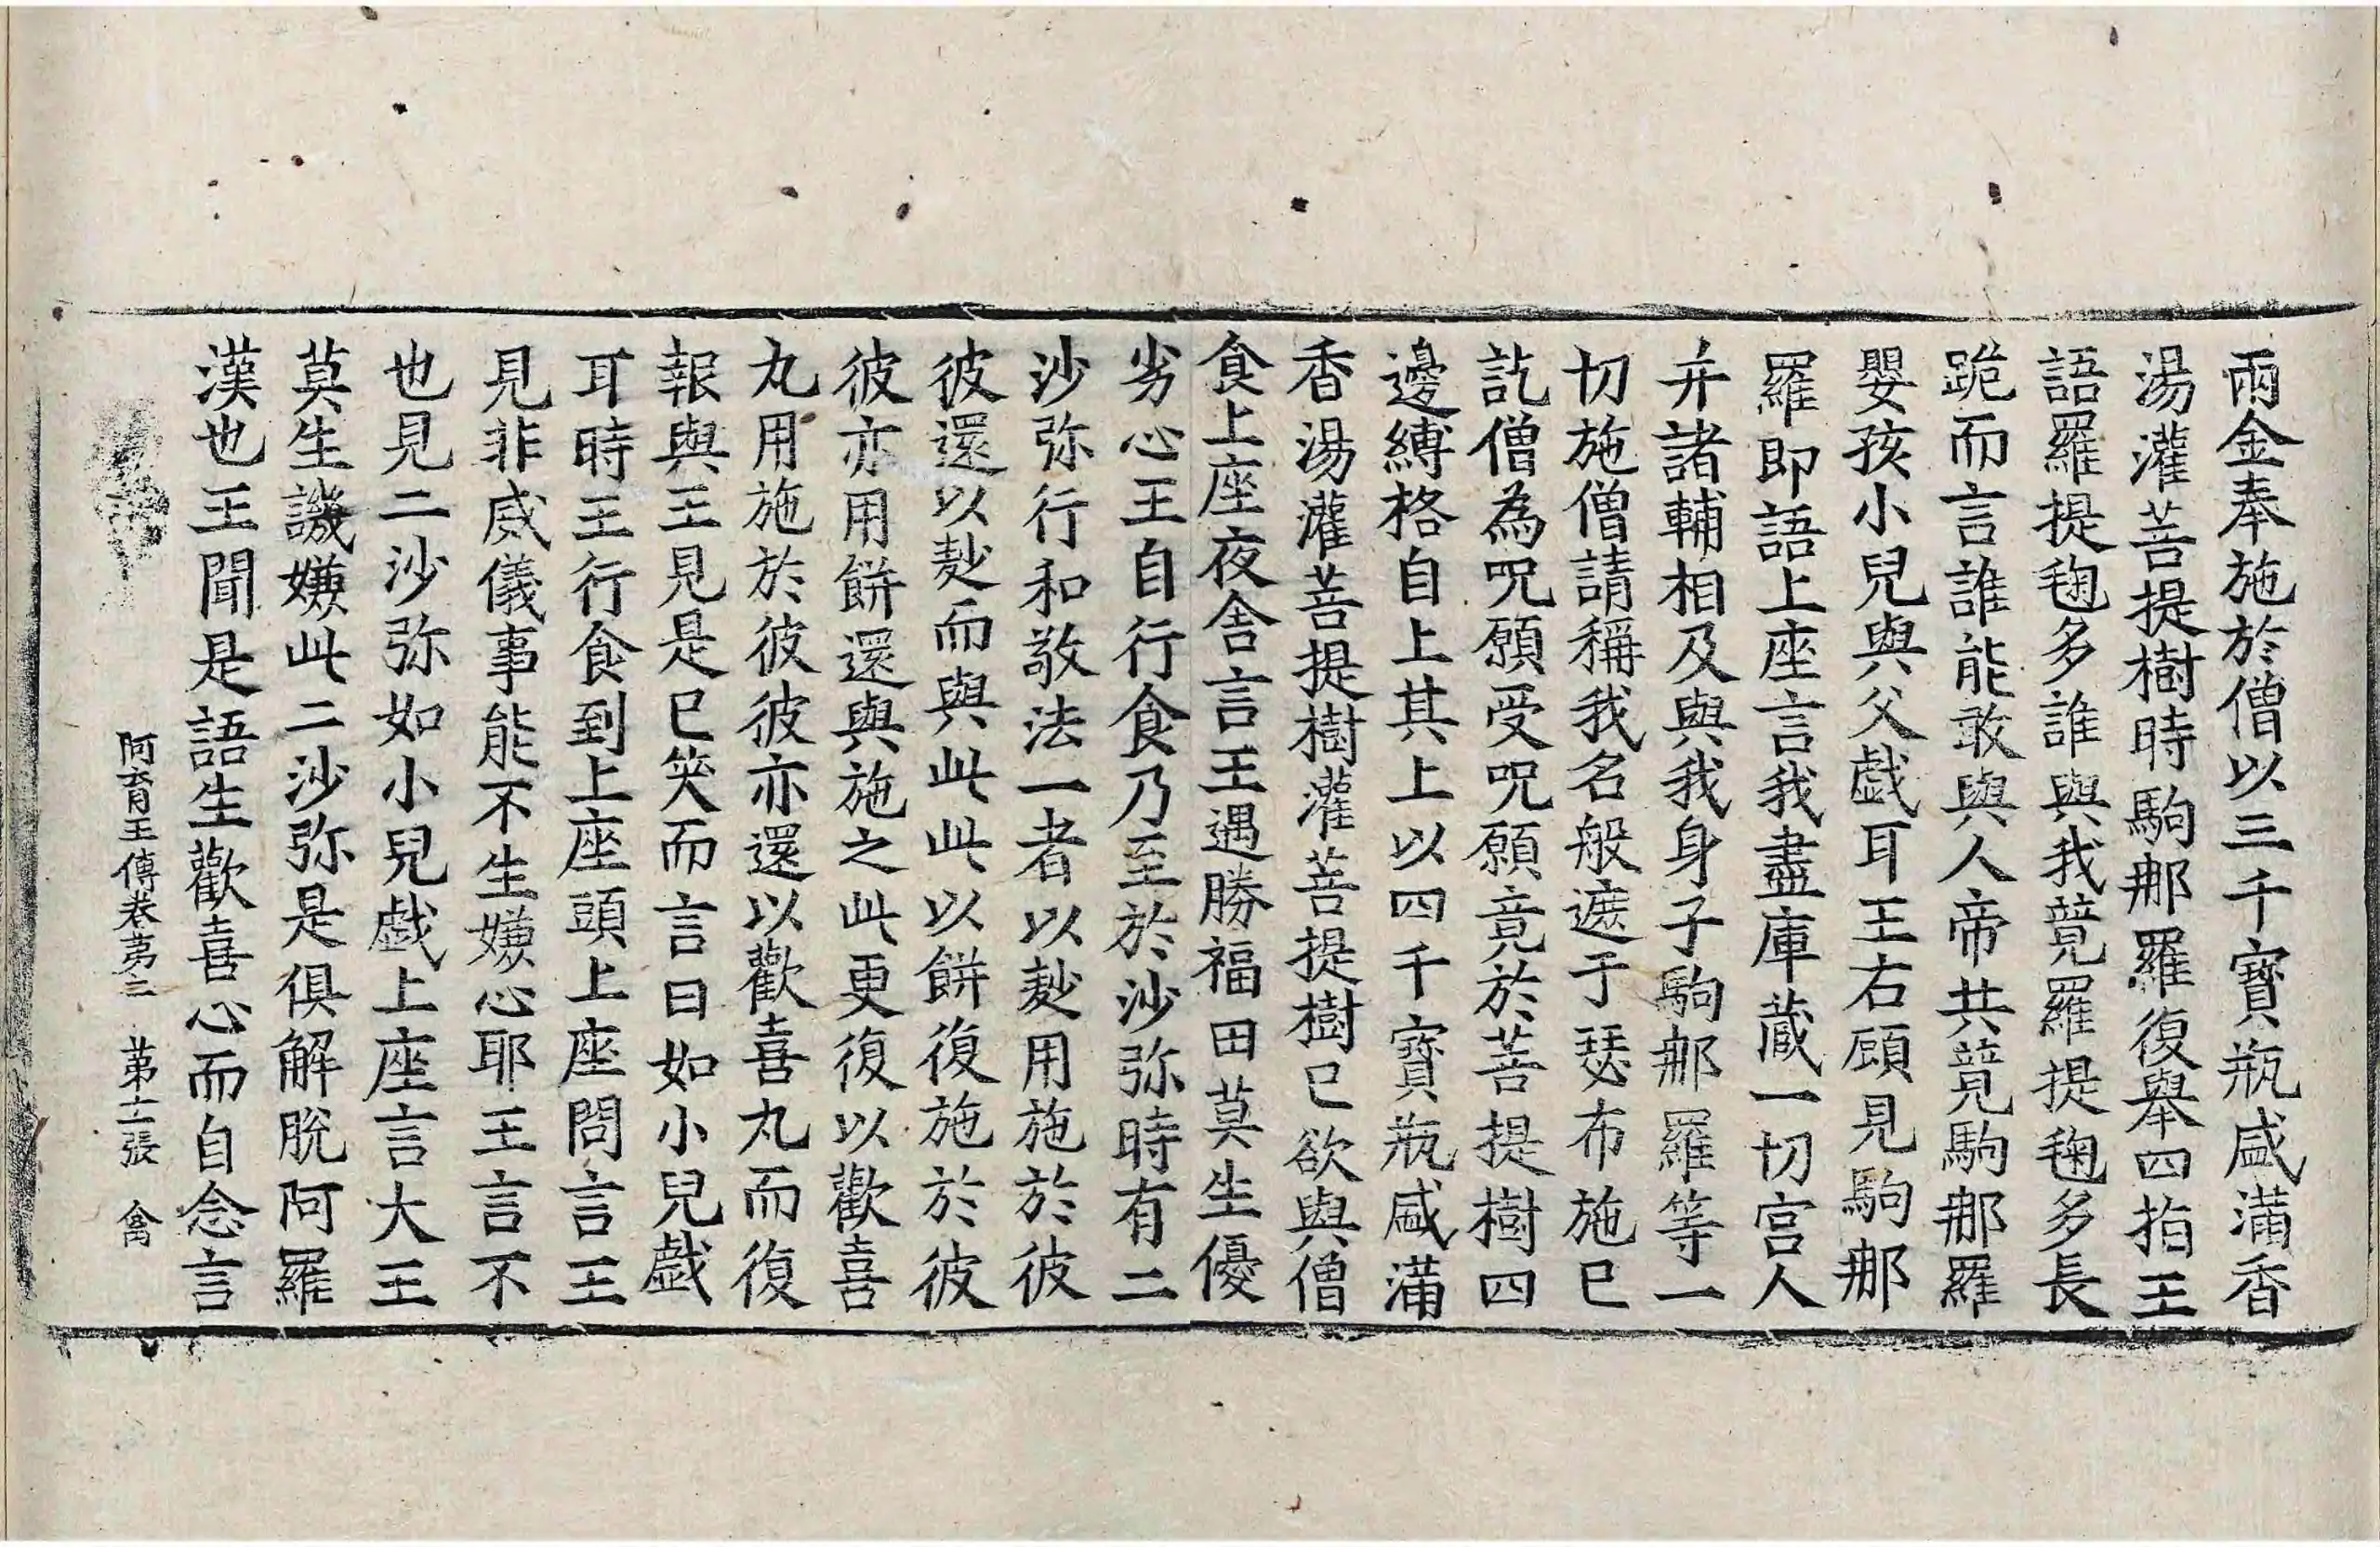 兩金奉施於僧以三千寶瓶盛滿香
湯灌菩提樹時駒那羅復舉四拍王
語羅提毱多誰與我競羅提毱多長
跪而言誰能敢與人帝共競駒那羅
嬰孩小兒與父戲耳王右顧見駒那
羅即語上座言我盡庫藏一切宮人
并諸輔相及與我身子駒那羅等一
切施僧請稱我名般遮于瑟布施已
訖僧為呪願受呪願竟於菩提樹四
邊縛格自上其上以四千寶瓶盛滿
香湯灌菩提樹灌菩提樹已欲與僧
食上座夜舍言王遇勝福田莫生優
劣心王自行食乃至於沙弥時有二
沙弥行和敬法一者以麨用施於彼
彼還以麨而與此此以餅復施於彼
彼亦用餅還與施之此更復以歡喜
丸用施於彼彼亦還以歡喜丸而復
報與王見是已笑而言曰如小兒戲
耳時王行食到上座頭上座問言王
見非威儀事能不生嫌心耶王言不
也見二沙弥如小兒戲上座言大王
莫生譏嫌此二沙弥是俱解脫阿羅
漢也王聞是語生歡喜心而自念言
阿育王傳卷第三　第十二張　禽